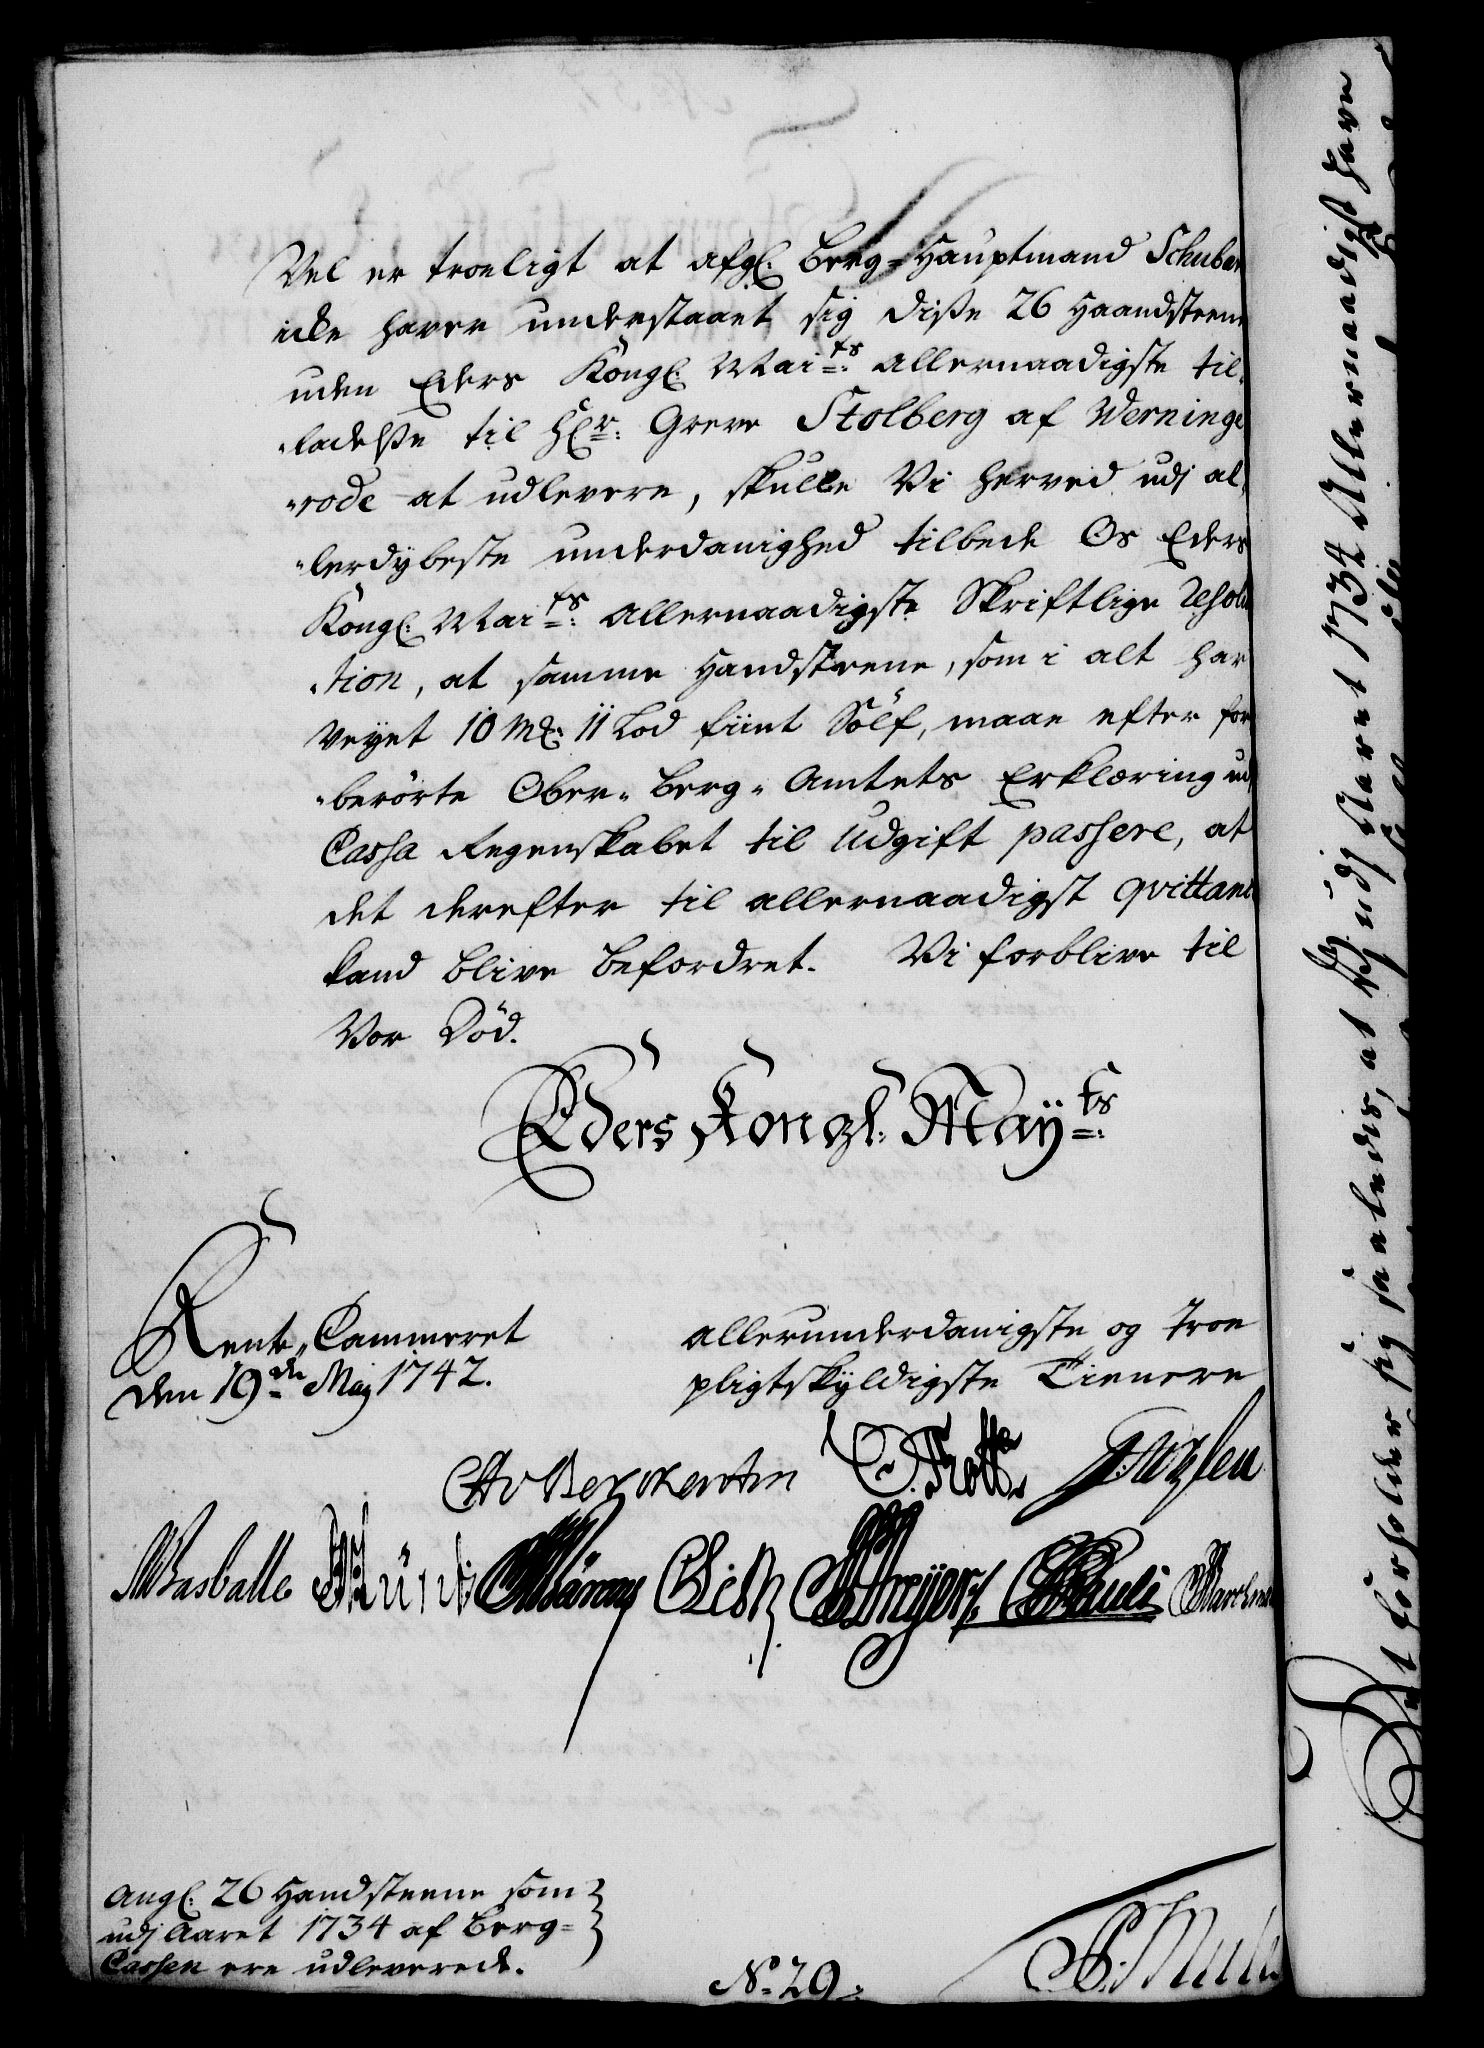 Vel er troeligt at afgl: Berg-Hauptmand Schubar
icke haver understaaet sig diße 26 Haandsteene
uden Eders Kongl: Mai:ts Allernaadigste til,
,ladelße til Hr: Greve Stolberg af Werninge
,rode at udlevere, skulle Vi herved udj al,
,lerdybeste underdanighed tilbede Os Eders
Kongl: Mai:ts Allernaadigste Skriftlige Resolu
,tion, at samme Handsteene, som i alt har
Veyet 10 Mk: 11 Lod fiint Sölf, maae efter for
,berörte Ober-Berg-Amtets Erklæring udj
Cassa Regenskabet til Udgift passere, at
det derefter til allernaadigst qvittanc
kand blive befordret. Vi forblive til
Vor Död.
Eders Kongl: Maÿ:ts
Rente-Cammeret
den 19de Maj 1742.
allerunderdanigste og troe
pligtskyldigste Tienere
CAv Berckentin
Trott
Wasballe
Pauli
Angl: 26 Handsteene som
udj Aaret 1734 af Berg-
Cassen ere udleverede.
No: 29.
Det forholder sig saaledis, at Vj udj Aaret 1734 Allernaadigst have